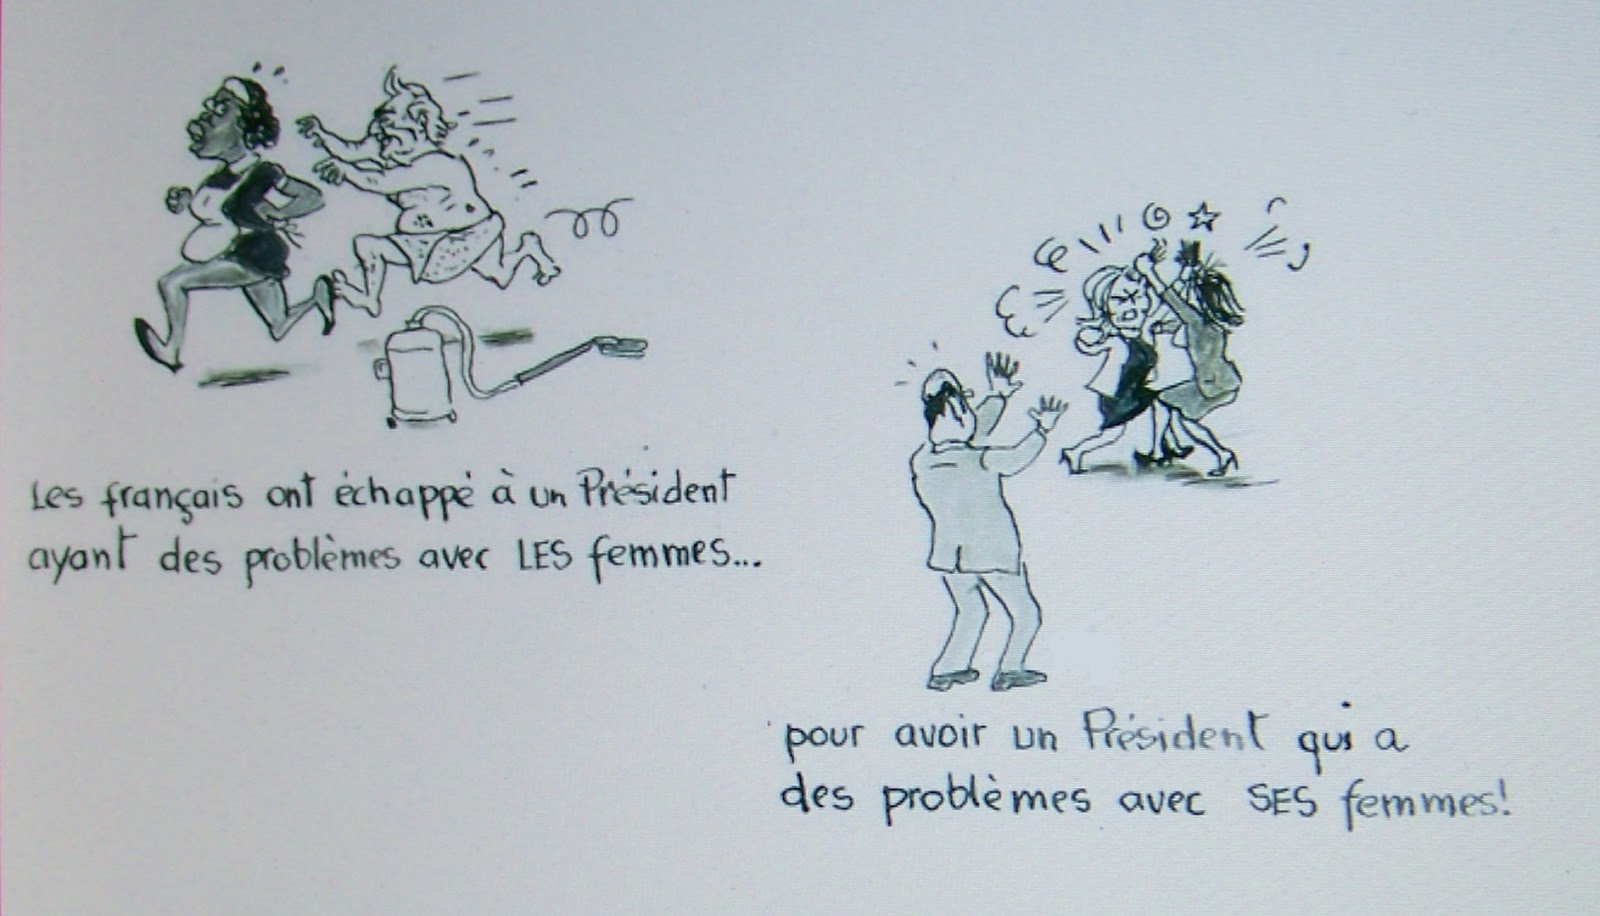 Les français ont échappé à un Président
ayant des problèmes avec LES femmes...
pour avoir un Président qui a
des problèmes avec SES femmes!